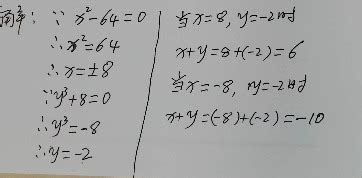 解: ∵ x²-64=0
∴ x²=64
∴ x=±8
∵ y³+8=0
∴ y³=-8
∴ y=-2
当x=8, y=-2时
x+y=8+(-2)=6
当x=-8, y=-2时
x+y=(-8)+(-2)=-10